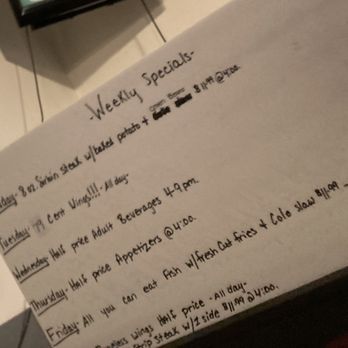 -Weekly Specials-
day- 8 oz. Sirloin steak w/ baked potato + Green Beans $11.99 @ 4:00.
Tuesday- Cent Wings!!! -All day-
Wednesday- Half price Adult Beverages 4-9 pm.
Thursday- Half price Appetizers @ 4:00.
Friday- All you can eat Fish w/ fresh Cut fries + Cole slaw $11.99
Boneless wings Half price -All day-
Strip Steak w/ 1 side $11.99 @ 4:00.